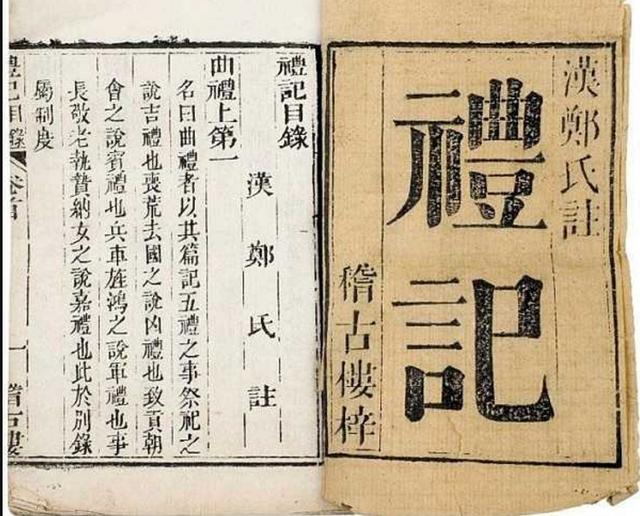 漢鄭氏註
禮記
稽古樓梓
禮記目錄
漢鄭氏註
曲禮上第一
名曰曲禮者以其篇記五禮之事祭祀之
說吉禮也喪荒去國之說凶禮也致貢朝
會之說賓禮也兵車旌鴻之說軍禮也事
長敬老執贄納女之說嘉禮也此於別錄
屬制度
禮記目錄 卷首 一 稽古樓